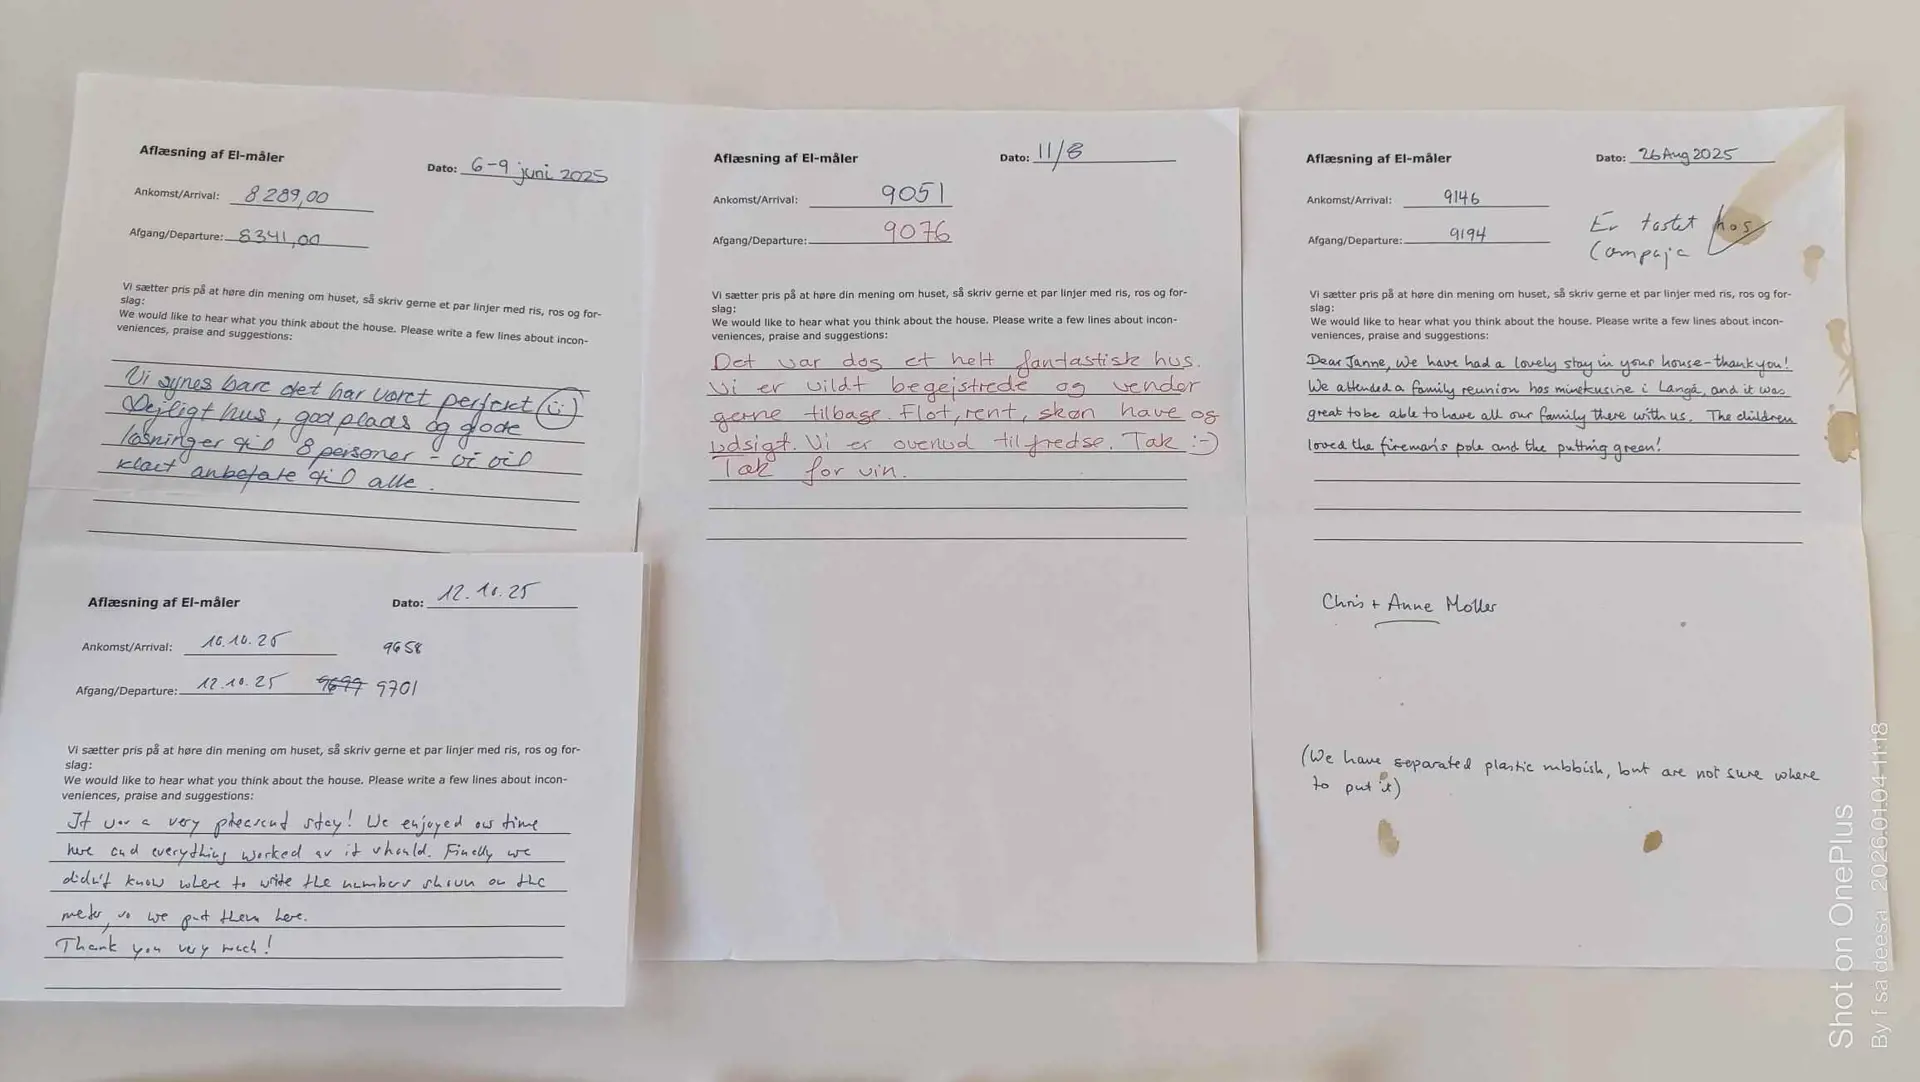 Aflæsning af El-måler
Dato: 6-9 juni 2025
Ankomst/Arrival: 8289,00
Afgang/Departure: 8341,00
Vi sætter pris på at høre din mening om huset, så skriv gerne et par linjer med ris, ros og for-
slag:
We would like to hear what you think about the house. Please write a few lines about incon-
veniences, praise and suggestions:
Vi synes bare det har været perfekt
Dejligt hus, god plads og gode
løsninger til 8 personer - vi vil
klart anbefale til alle.
Aflæsning af El-måler
Dato: 11/8
Ankomst/Arrival: 9051
Afgang/Departure: 9076
Vi sætter pris på at høre din mening om huset, så skriv gerne et par linjer med ris, ros og for-
slag:
We would like to hear what you think about the house. Please write a few lines about incon-
veniences, praise and suggestions:
Det var dog et helt fantastisk hus.
Vi er vildt begejstrede og vender
gerne tilbage. Flot, rent, skøn have og
udsigt. Vi er ovenud tilfredse. Tak :-)
Tak for vin.
Aflæsning af El-måler
Dato: 26 Aug 2025
Ankomst/Arrival: 9146
Afgang/Departure: 9194
Er tastet hos
Campaja
Vi sætter pris på at høre din mening om huset, så skriv gerne et par linjer med ris, ros og for-
slag:
We would like to hear what you think about the house. Please write a few lines about incon-
veniences, praise and suggestions:
Dear Janne, We have had a lovely stay in your house - thank you!
We attended a family reunion hos minekusine i Langå, and it was
great to be able to have all our family there with us. The children
loved the fireman's pole and the putting green!
Chris + Anne Moller
(We have separated plastic rubbish, but are not sure where
to put it)
Aflæsning af El-måler
Dato: 12.10.25
Ankomst/Arrival: 10.10.25 9658
Afgang/Departure: 12.10.25 9699 9701
Vi sætter pris på at høre din mening om huset, så skriv gerne et par linjer med ris, ros og for-
slag:
We would like to hear what you think about the house. Please write a few lines about incon-
veniences, praise and suggestions:
It was a very pleasent stay! We enjoyed our time
here and everything worked as it should. Finally we
didn't know where to write the numbers shown on the
meter, so we put them here.
Thank you very much!
Shot on OnePlus
By f sa deesa 2026.01.04 11:18